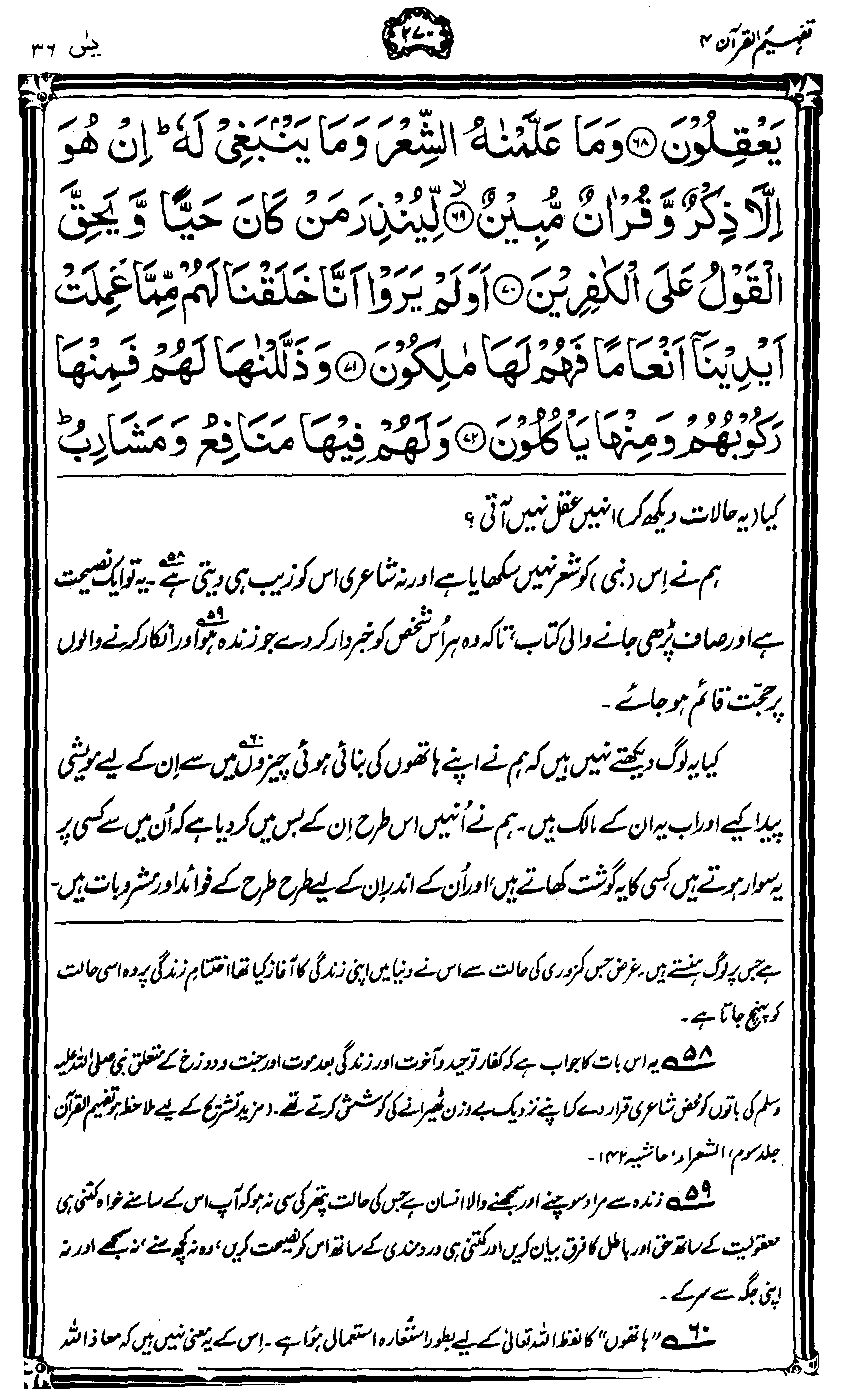 تفہیم القرآن ۴
۲۷۰
یٰسٓ ۳۶
يَعْقِلُوْنَ ﴿۶۸﴾ وَمَا عَلَّمْنٰهُ الشِّعْرَ وَمَا يَنْۢبَغِيْ لَهٗ ؕ اِنْ هُوَ
اِلَّا ذِكْرٌ وَّ قُرْاٰنٌ مُّبِيْنٌ ﴿۶۹﴾ۙ لِّيُنْذِرَ مَنْ كَانَ حَيًّا وَّ يَحِقَّ
الْقَوْلُ عَلَى الْكٰفِرِيْنَ ﴿۷۰﴾ اَوَلَمْ يَرَوْا اَنَّا خَلَقْنَا لَهُمْ مِّمَّا عَمِلَتْ
اَيْدِيْنَاۤ اَنْعَامًا فَهُمْ لَهَا مٰلِكُوْنَ ﴿۷۱﴾ وَذَلَّلْنٰهَا لَهُمْ فَمِنْهَا
رَكُوْبُهُمْ وَمِنْهَا يَاْكُلُوْنَ ﴿۷۲﴾ وَلَهُمْ فِيْهَا مَنَافِعُ وَمَشَارِبُ ؕ
کیا (یہ حالات دیکھ کر) انہیں عقل نہیں آتی ؟
ہم نے اِس (نبی) کو شعر نہیں سکھایا ہے اور نہ شاعری اس کو زیب ہی دیتی ہے۵۸۔ یہ تو ایک نصیحت
ہے اور صاف پڑھی جانے والی کتاب، تاکہ وہ ہر اُس شخص کو خبردار کر دے جو زندہ ہو۵۹ اور انکار کرنے والوں
پر حجّت قائم ہو جائے۔
کیا یہ لوگ دیکھتے نہیں ہیں کہ ہم نے اپنے ہاتھوں کی بنائی ہوئی چیزوں۶۰ میں سے اِن کے لیے مویشی
پیدا کیے اور اب یہ ان کے مالک ہیں۔ ہم نے اُنہیں اس طرح اِن کے بس میں کر دیا ہے کہ اُن میں سے کسی پر
یہ سوار ہوتے ہیں، کسی کا یہ گوشت کھاتے ہیں، اور اُن کے اندر اِن کے لیے طرح طرح کے فوائد اور مشروبات ہیں۔
ہے جس پر لوگ ہنستے ہیں۔ غرض جس کمزوری کی حالت سے اس نے دنیا میں اپنی زندگی کا آغاز کیا تھا اختتامِ زندگی پر وہ اسی حالت
کو پہنچ جاتا ہے۔
۵۸ یہ اس بات کا جواب ہے کہ کفار توحید و آخرت اور زندگی بعد موت اور جنت و دوزخ کے متعلق نبی صلی اللہ علیہ
وسلم کی باتوں کو محض شاعری قرار دے کر اپنے نزدیک بے وزن ٹھیرانے کی کوشش کرتے تھے۔ (مزید تشریح کے لیے ملاحظہ ہو تفہیم القرآن
جلد سوم، الشعراء، حاشیہ ۱۴۲۔
۵۹ زندہ سے مراد سوچنے اور سمجھنے والا انسان ہے جس کی حالت پتھر کی سی نہ ہو کہ آپ اس کے سامنے خواہ کتنی ہی
معقولیت کے ساتھ حق اور باطل کا فرق بیان کریں اور کتنی ہی درد مندی کے ساتھ اس کو نصیحت کریں، وہ نہ کچھ سنے، نہ سمجھے اور نہ
اپنی جگہ سے سرکے۔
۶۰ ”ہاتھوں“ کا لفظ اللہ تعالیٰ کے لیے بطورِ استعارہ استعمال ہوا ہے۔ اِس کے یہ معنی نہیں ہیں کہ معاذ اللہ